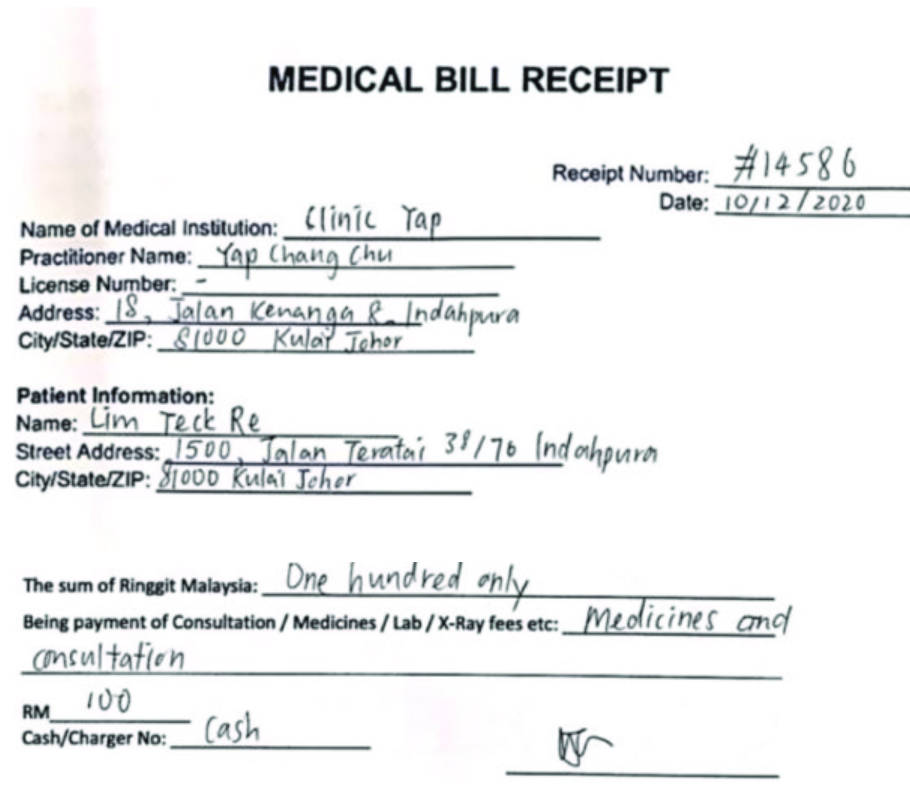 MEDICAL BILL RECEIPT
Receipt Number: #14586
Date: 10/12/2020
Name of Medical Institution: Clinic Yap
Practitioner Name: Yap Chang Chu
License Number: -
Address: 18, Jalan Kenanga 8 Indahpura
City/State/ZIP: 81000 Kulai Johor
Patient Information:
Name: Lim Teck Re
Street Address: 1500, Jalan Teratai 38/76 Indahpura
City/State/ZIP: 81000 Kulai Johor
The sum of Ringgit Malaysia: One hundred only
Being payment of Consultation / Medicines / Lab / X-Ray fees etc: Medicines and
consultation
RM 100
Cash/Charger No: Cash